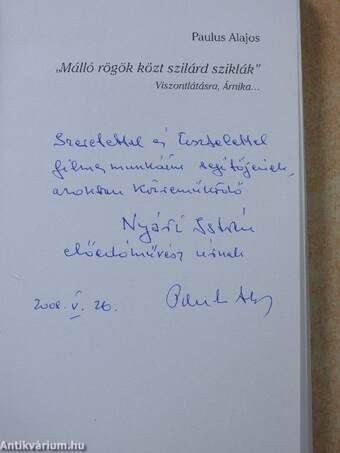 Paulus Alajos
„Málló rögök közt szilárd sziklák”
Viszontlátásra, Árnika...
Szeretettel és Tisztelettel
filmes munkáim segítőjének,
azokban közreműködő
Nyári István
előadóművész úrnak
2008. V. 26.
Antikvárium.hu